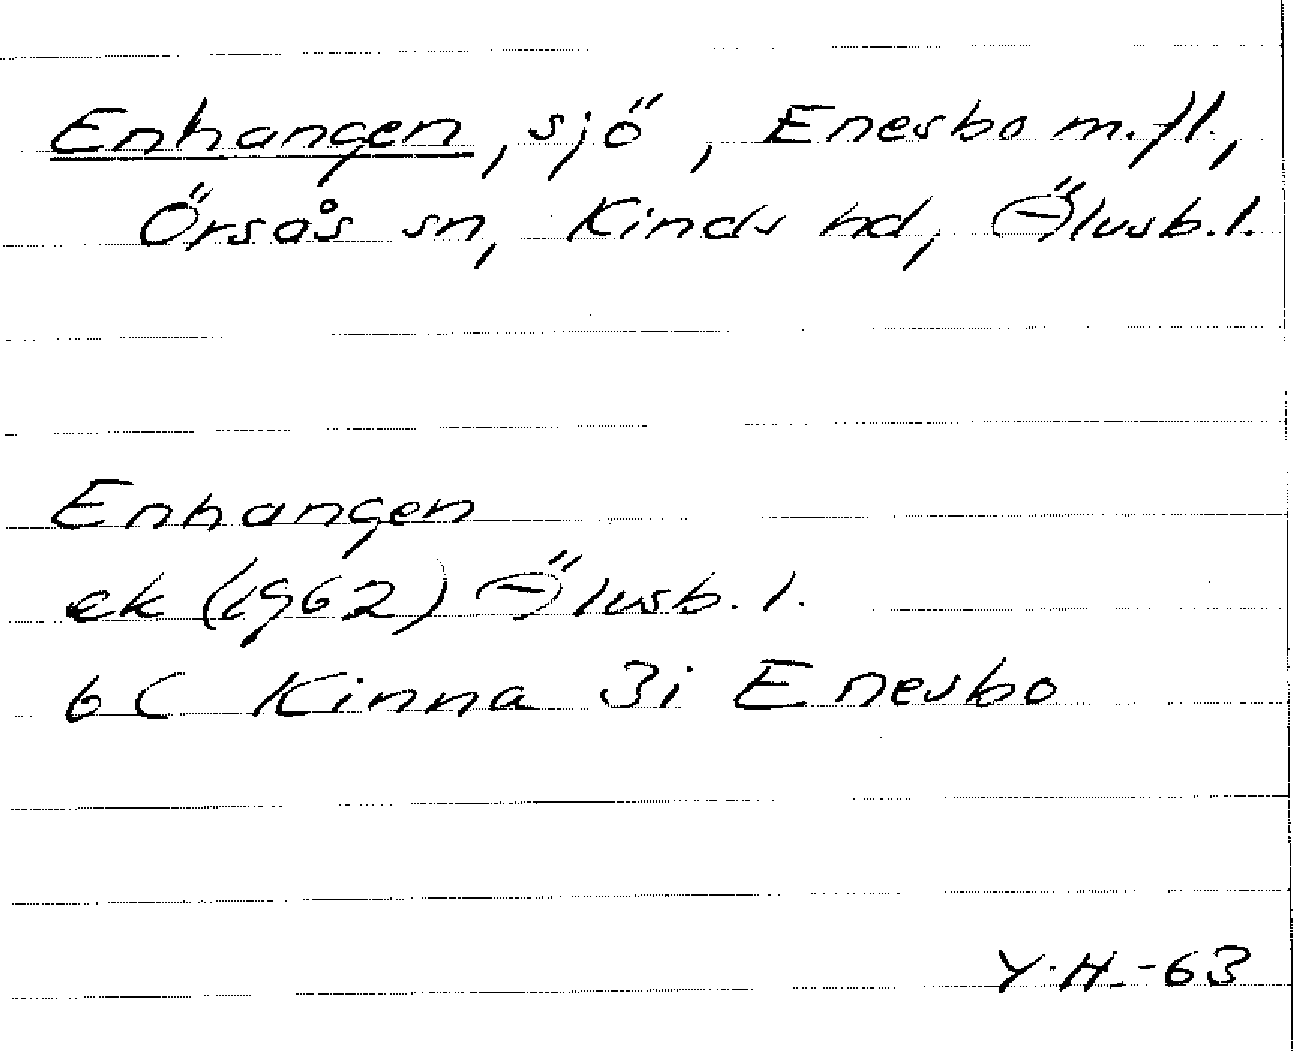 Enhangen, sjö, Enesbo m.fl.,
Örsås sn, Kinds hd, Älvsb.l.
Enhangen
ek (1962) Älvsb.l.
6C Kinna 3i Enesbo
Y.H.-63